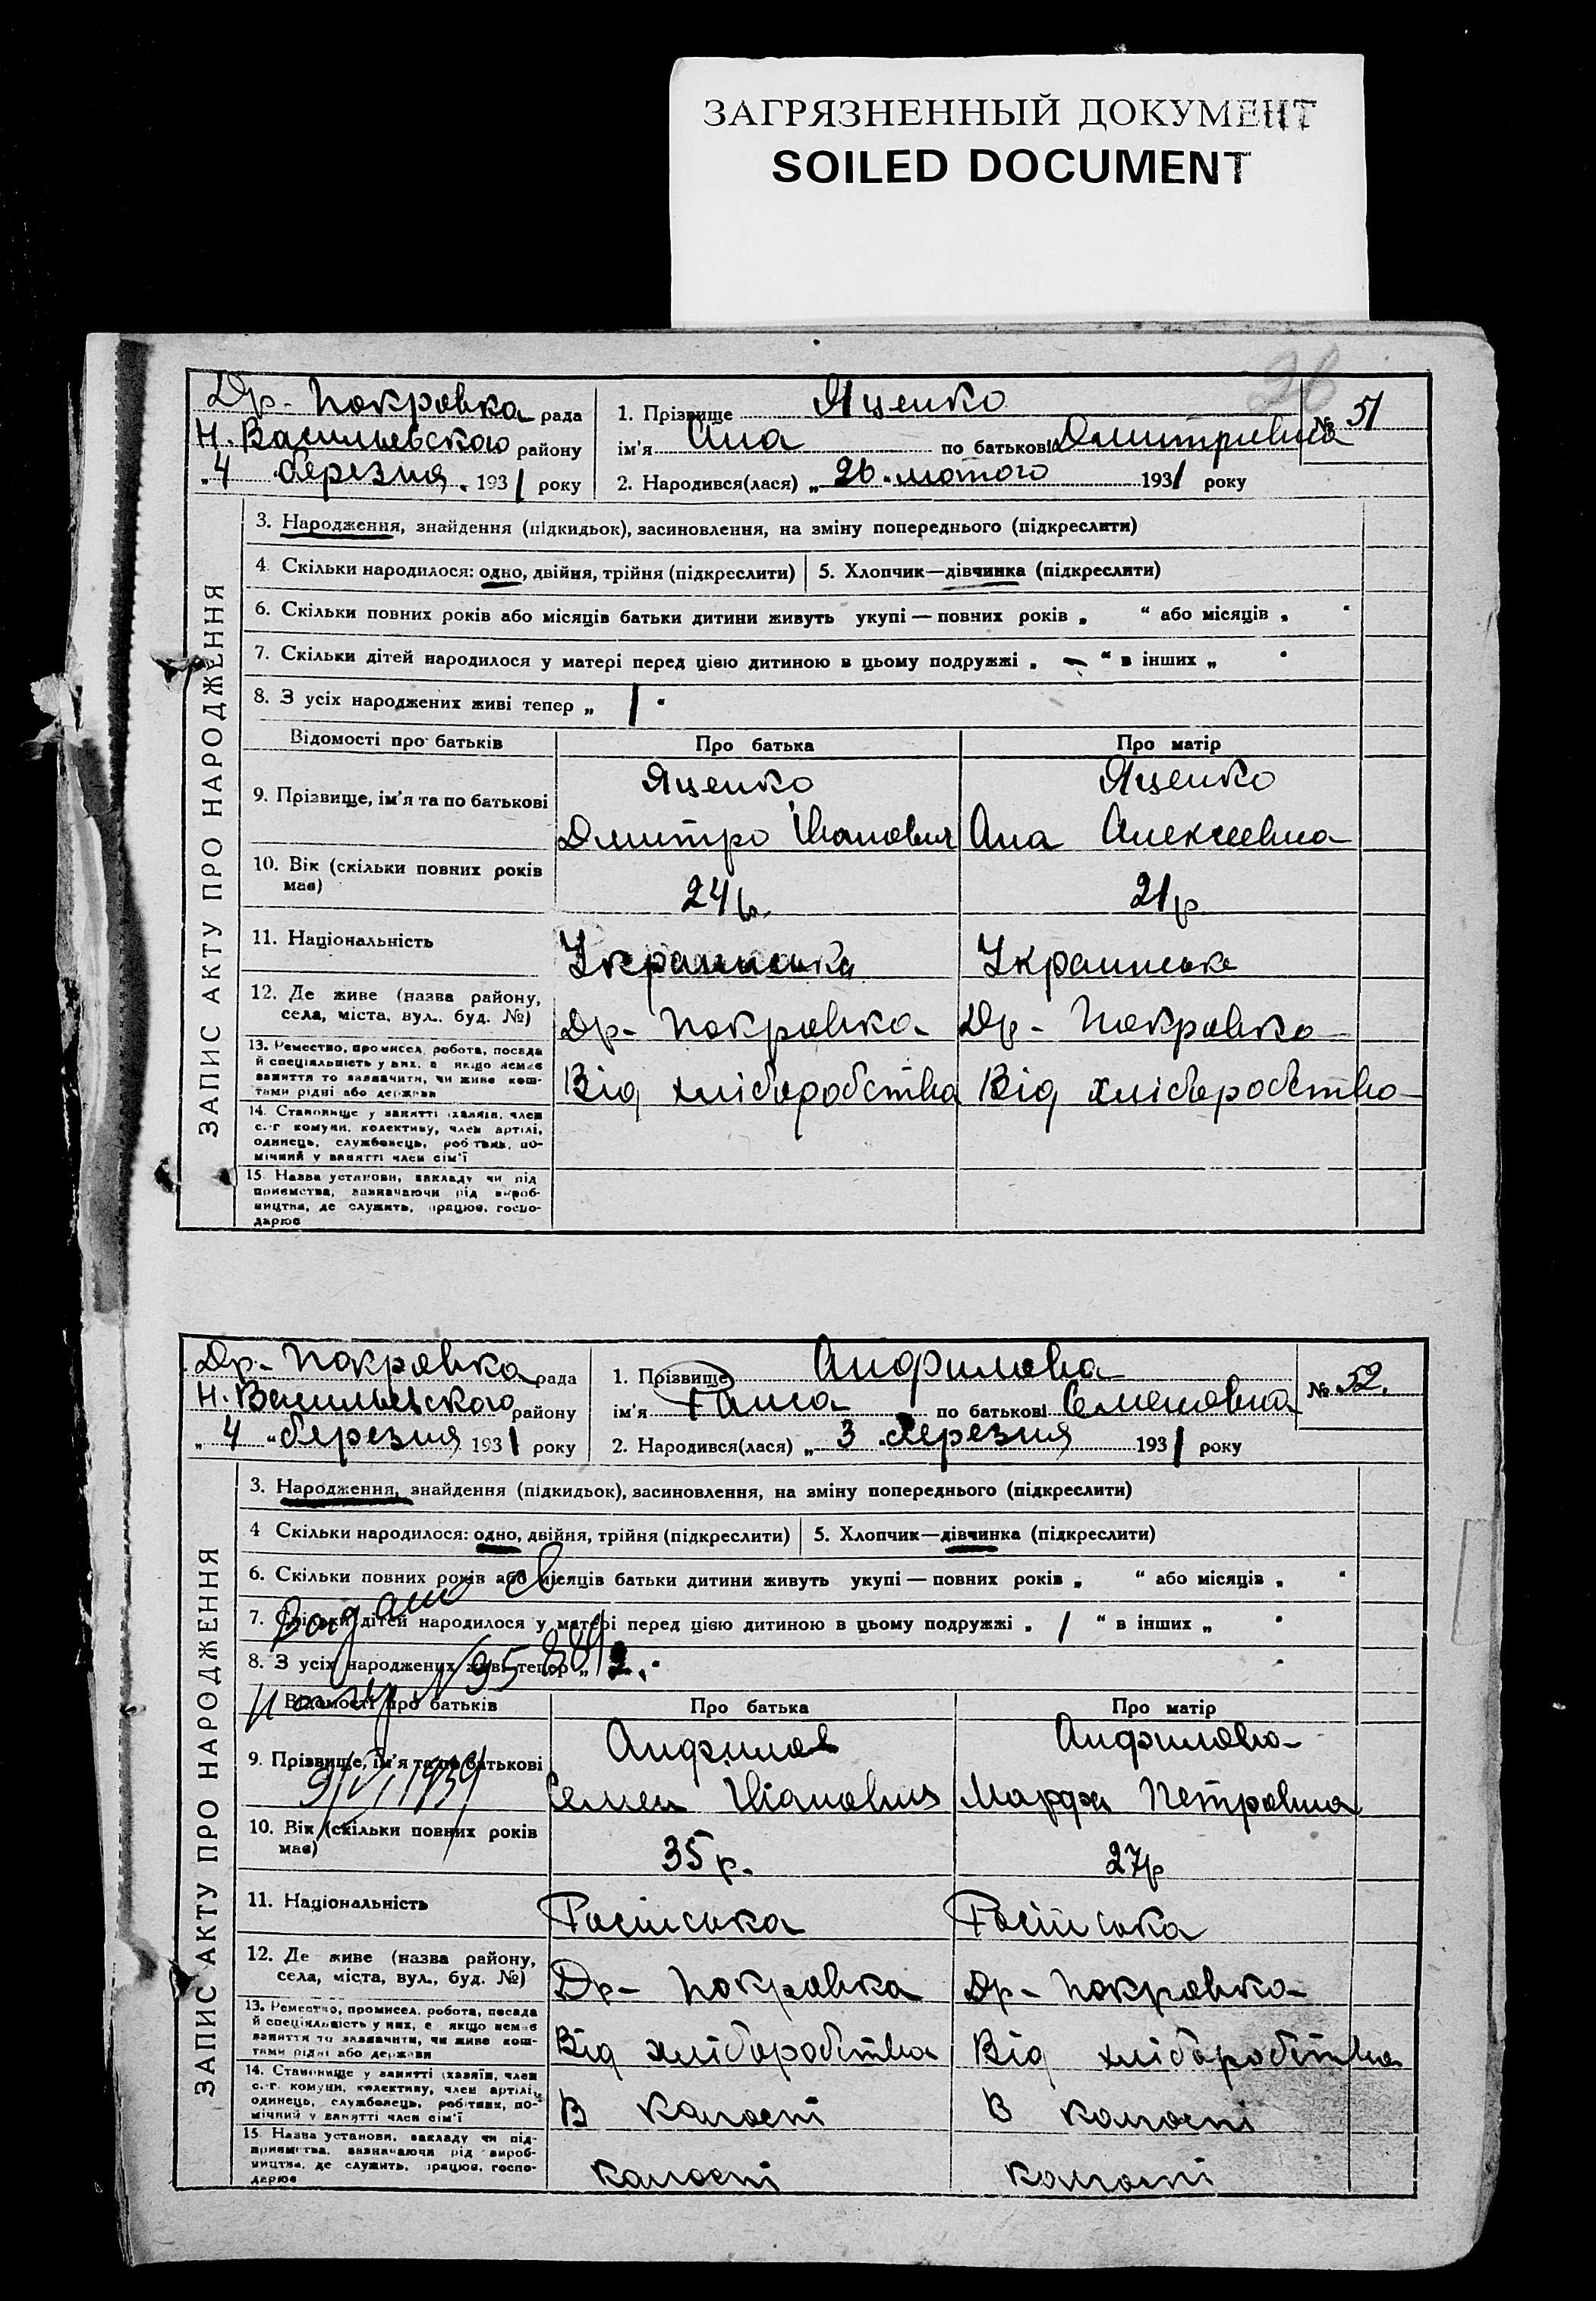 ЗАГРЯЗНЕННЫЙ ДОКУМЕНТ
SOILED DOCUMENT
26
Др- Покровка рада
Н. Васильевского району
„4 березня 1931 року
1. Прізвище Яценко
№ 51
ім'я Ана по батькові Дмитривна
2. Народився(лася) „26 лютого 1931 року
ЗАПИС АКТУ ПРО НАРОДЖЕННЯ
3. Народження, знайдення (підкидьок), засиновлення, на зміну попереднього (підкреслити)
4. Скільки народилося: одно, двійня, трійня (підкреслити) 5. Хлопчик—дівчинка (підкреслити)
6. Скільки повних років або місяців батьки дитини живуть укупі — повних років „ “ або місяців „ “
7. Скільки дітей народилося у матері перед цією дитиною в цьому подружжі „ — “ в інших „ “
8. З усіх народжених живі тепер „ 1 “
Відомості про батьків Про батька Про матір
9. Прізвище, ім'я та по батькові
Яценко Яценко
Дмитро Іванович Ана Алексеевна
10. Вік (скільки повних років має)
24 р. 21 р
11. Національність
Украинська Украинська
12. Де живе (назва району, села, міста, вул., буд. №)
Др- Покровка Др- Покровка
13. Ремество, промисел, робота, посада
й спеціяльність у них, а якщо немає
заняття то зазначити, чи живе кош-
тами рідні або держави
Від хліборобства Від хліборобства
14. Становище у занятті (хазяїн, член
с.-г. комуни, колективу, член артілі,
одинець, службовець, робітник, по-
мічний у занятті член сім'ї
15. Назва установи, закладу чи під
приємства, зазначаючи рід вироб-
ництва, де служить, працює, госпо-
дарює
Др- Покровка рада
Н. Васильевского району
„4 березня 1931 року
1. Прізвище Анфилова
№ 52.
ім'я Ганна по батькові Семеновна
2. Народився(лася) „3 березня 1931 року
ЗАПИС АКТУ ПРО НАРОДЖЕННЯ
3. Народження, знайдення (підкидьок), засиновлення, на зміну попереднього (підкреслити)
4 Скільки народилося: одно, двійня, трійня (підкреслити) 5. Хлопчик—дівчинка (підкреслити)
6. Скільки повних років або місяців батьки дитини живуть укупі — повних років „ “ або місяців „ “
7. Скільки дітей народилося у матері перед цією дитиною в цьому подружжі „ 1 “ в інших „ “
8. З усіх народжених живі тепер „ 2. “
Відомості про батьків Про батька Про матір
9. Прізвище, ім'я та по батькові
Анфилов Анфилова
Семен Іванович Марфа Петровна
10. Вік (скільки повних років має)
35 р. 27 р
11. Національність
Російська Російська
12. Де живе (назва району, села, міста, вул., буд. №)
Др- Покровка Др- Покровка
13. Ремество, промисел, робота, посада
й спеціяльність у них, а якщо немає
заняття то зазначити, чи живе кош-
тами рідні або держави
Від хліборобства Від хліборобства
14. Становище у занятті (хазяїн, член
с.-г. комуни, колективу, член артілі,
одинець, службовець, робітник, по-
мічний у занятті член сім'ї
В В
15. Назва установи, закладу чи під-
приємства, зазначаючи рід вироб-
ництва, де служить, працює, госпо-
дарює